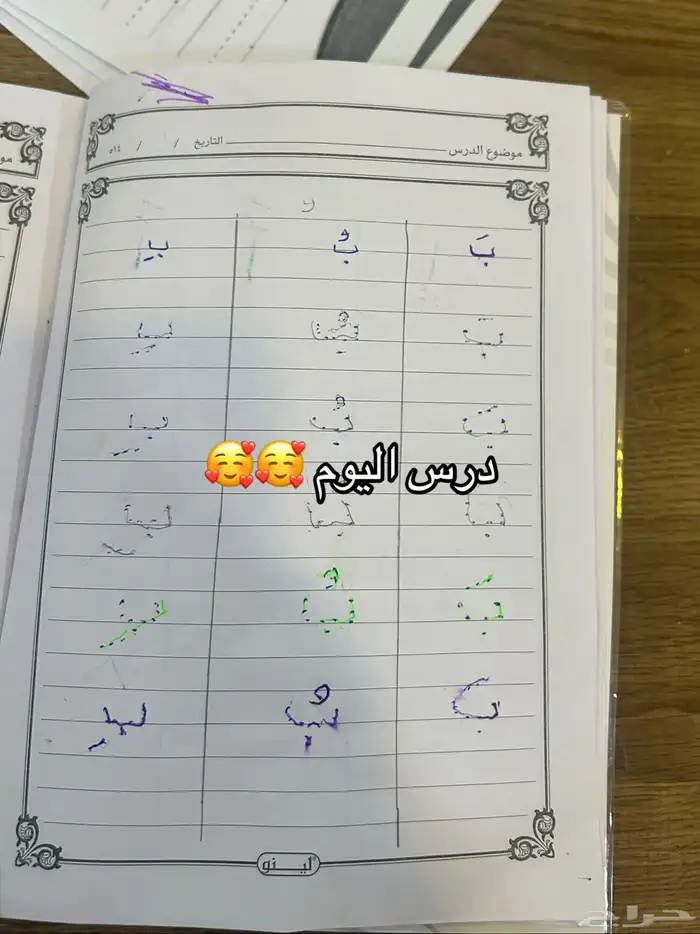 موضوع الدرس التاريخ / / ١٤هـ
و
بَ بُ بِ
بَ بُ بِ
بَ بُ بِ
درس اليوم 🥰🥰
بَ بُ بِ
بَ بُ بِ
لينو
حراج